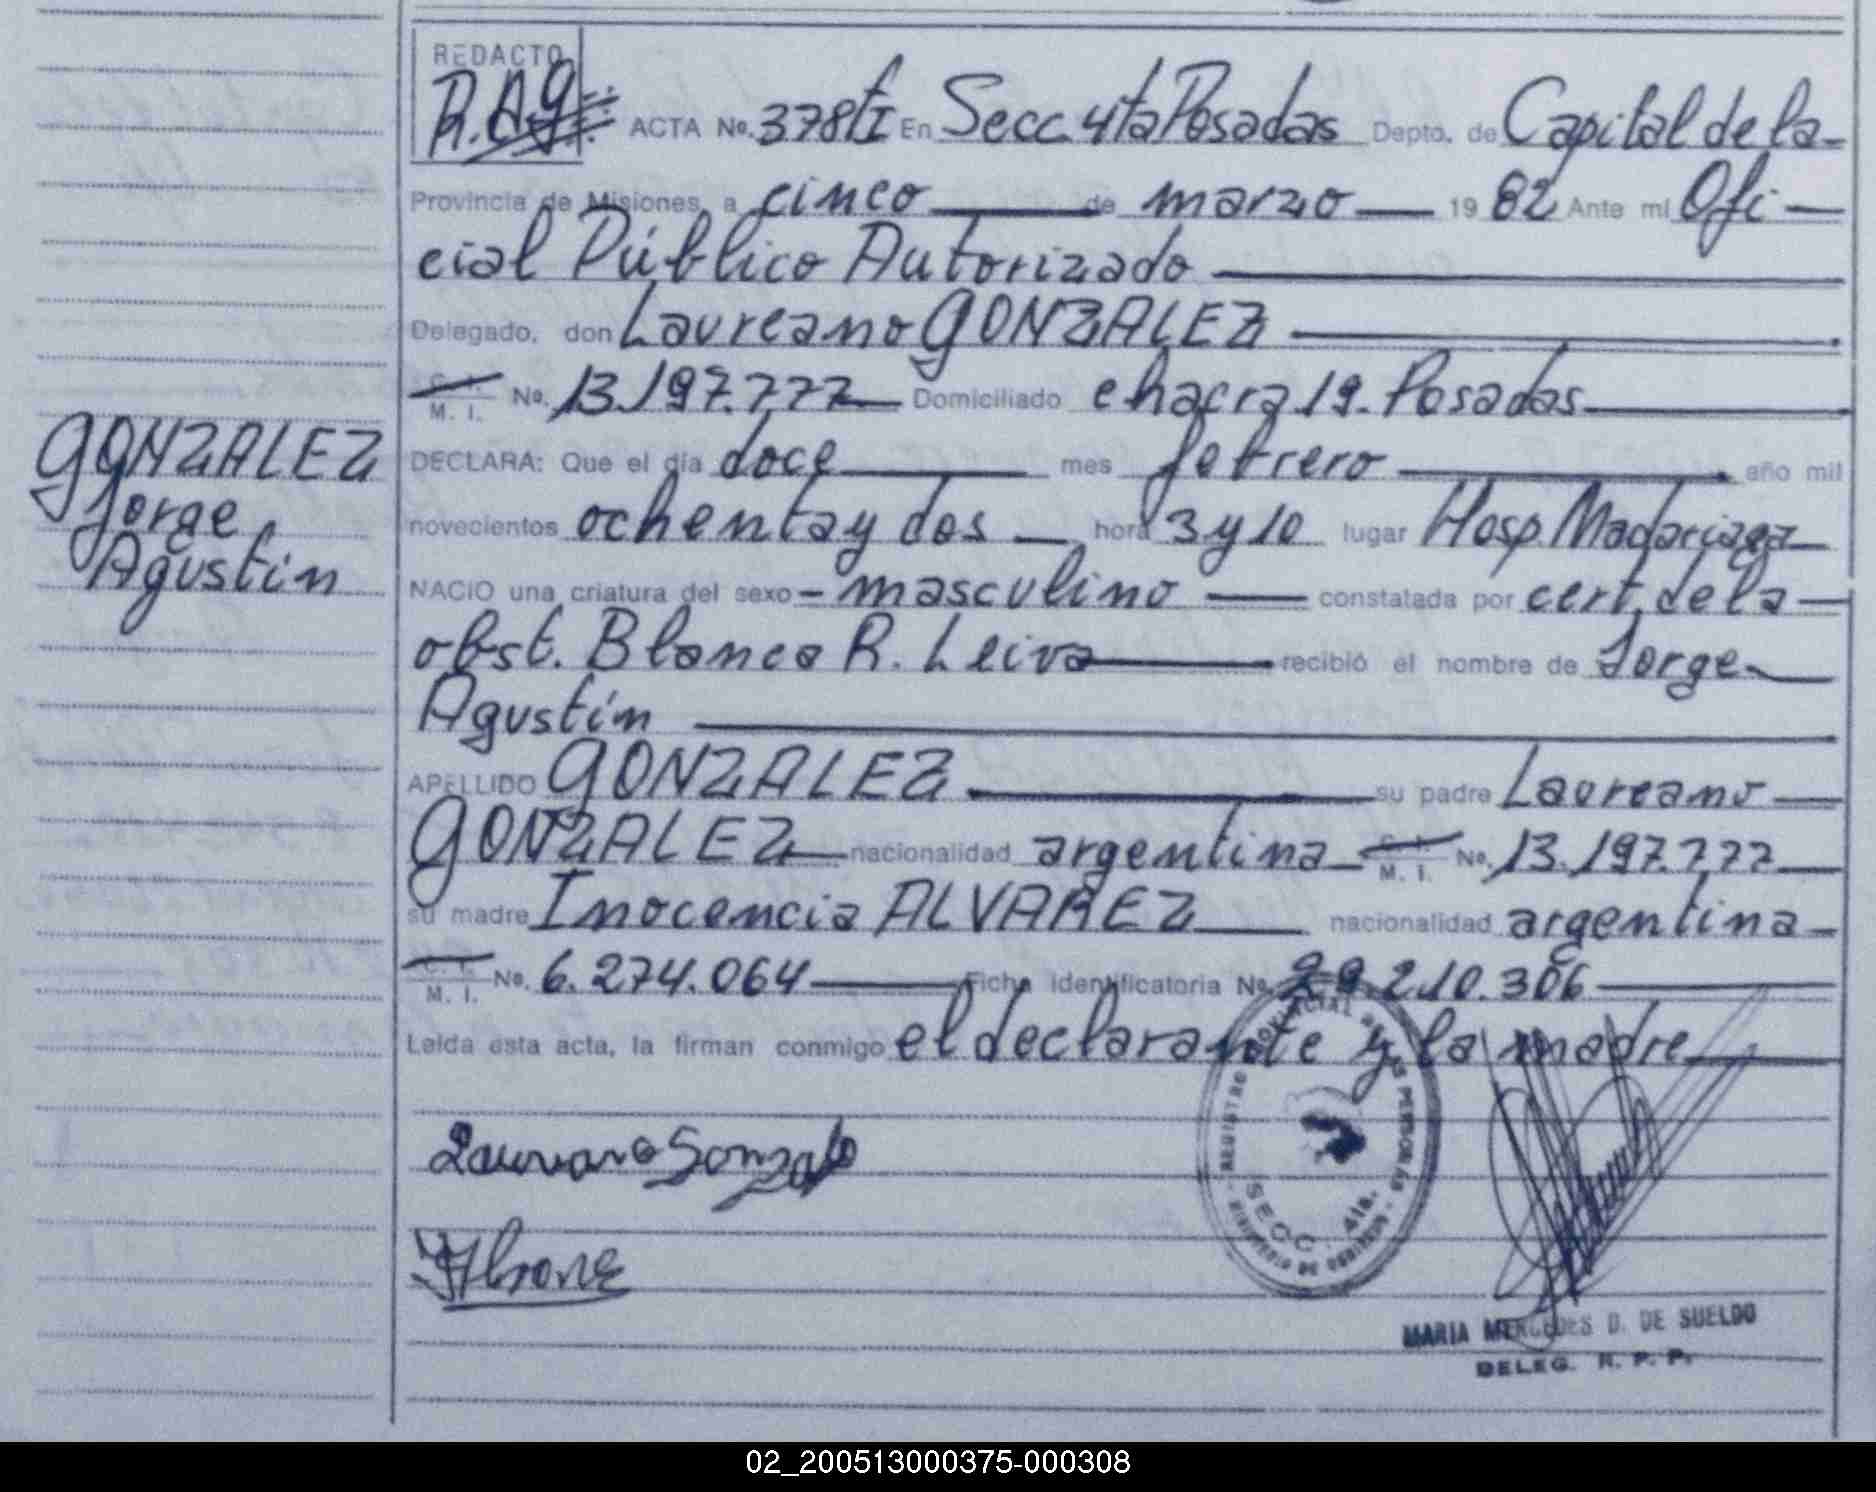 REDACTO
R.A.G.
ACTA No. 378 tI En Secc. 4ta Posadas Depto. de Capital de la
Provincia de Misiones, a cinco de marzo 19 82 Ante mí Ofi
cial Público Autorizado
Delegado, don Laureano GONZALEZ
C. I. M. I. No. 13.197.777 Domiciliado chacra 19. Posadas
GONZALEZ
Jorge
Agustín
DECLARA: Que el día doce mes febrero año mil
novecientos ochenta y dos hora 3 y 10 lugar Hosp. Madariaga
NACIO una criatura del sexo - masculino constatada por cert. de la
obst. Blanca R. Leiva recibió el nombre de Jorge
Agustín
APELLIDO GONZALEZ su padre Laureano
GONZALEZ nacionalidad argentina C. I. M. I. No. 13.197.777
su madre Inocencia ALVAREZ nacionalidad argentina
C. I. M. I. No. 6.274.064 Ficha identificatoria No. 29.210.306
Leída esta acta, la firman conmigo el declarante y la madre
Laureano Gonzale
REGISTRO PROVINCIAL DE LAS PERSONAS
SECC. 4ta.
MARIA MERCEDES D. DE SUELDO
DELEG. R. P. P.
02_200513000375-000308